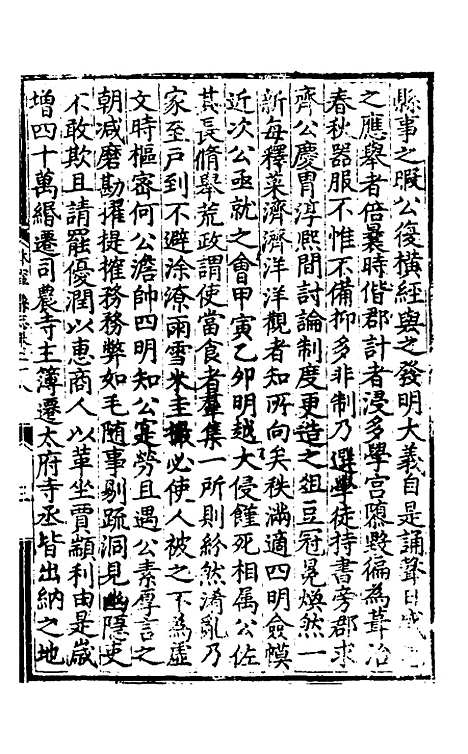 縣事之暇公復橫經與之發明大義自是誦聲日盛
之應舉者倍曩時偕郡計者浸多學宮隳毀徧為葺治
春秋器服不惟不備抑多非制乃選學徒持書旁郡求
齊公慶冑淳熙間討論制度更造之俎豆冠冕煥然一
新每釋菜濟濟洋洋觀者知所向矣秩滿適四明僉幙
近次公亟就之會甲寅乙卯明越大侵饉死相属公佐
其長脩舉荒政謂使當食者羣集一所則紛然淆亂乃
家至戶到不避涂潦雨雪米圭撮必使人被之不為虛
文時樞密何公澹帥四明知公寔勞且遇公素厚言之
朝減磨勘擢提搉務務弊如毛随事剔疏洞見幽隱吏
不敢欺且請罷優潤以惠商人以革坐賈顓利由是歲
増四十萬緡遷司農寺主簿遷太府寺丞皆出納之地